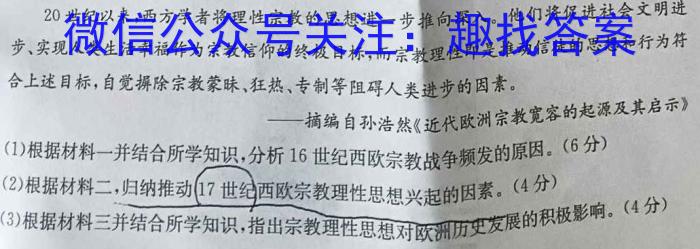 20世纪以来,西方学者将理性宗教的思想进一步推向深入。他们将促进社会文明进
步、实现 生活幸福作为宗教信仰的终极目标,而宗教理性 是推动信徒的思想和行为符
微信公众号关注:趣找答案
合上述目标,自觉摒除宗教蒙昧、狂热、专制等阻碍人类进步的因素。
——摘编自孙浩然《近代欧洲宗教宽容的起源及其启示》
(1)根据材料一并结合所学知识,分析16世纪西欧宗教战争频发的原因。(6分)
(2)根据材料二,归纳推动17世纪西欧宗教理性思想兴起的因素。(4分)
(3)根据材料三并结合所学知识,指出宗教理性思想对欧洲历史发展的积极影响。(4分)